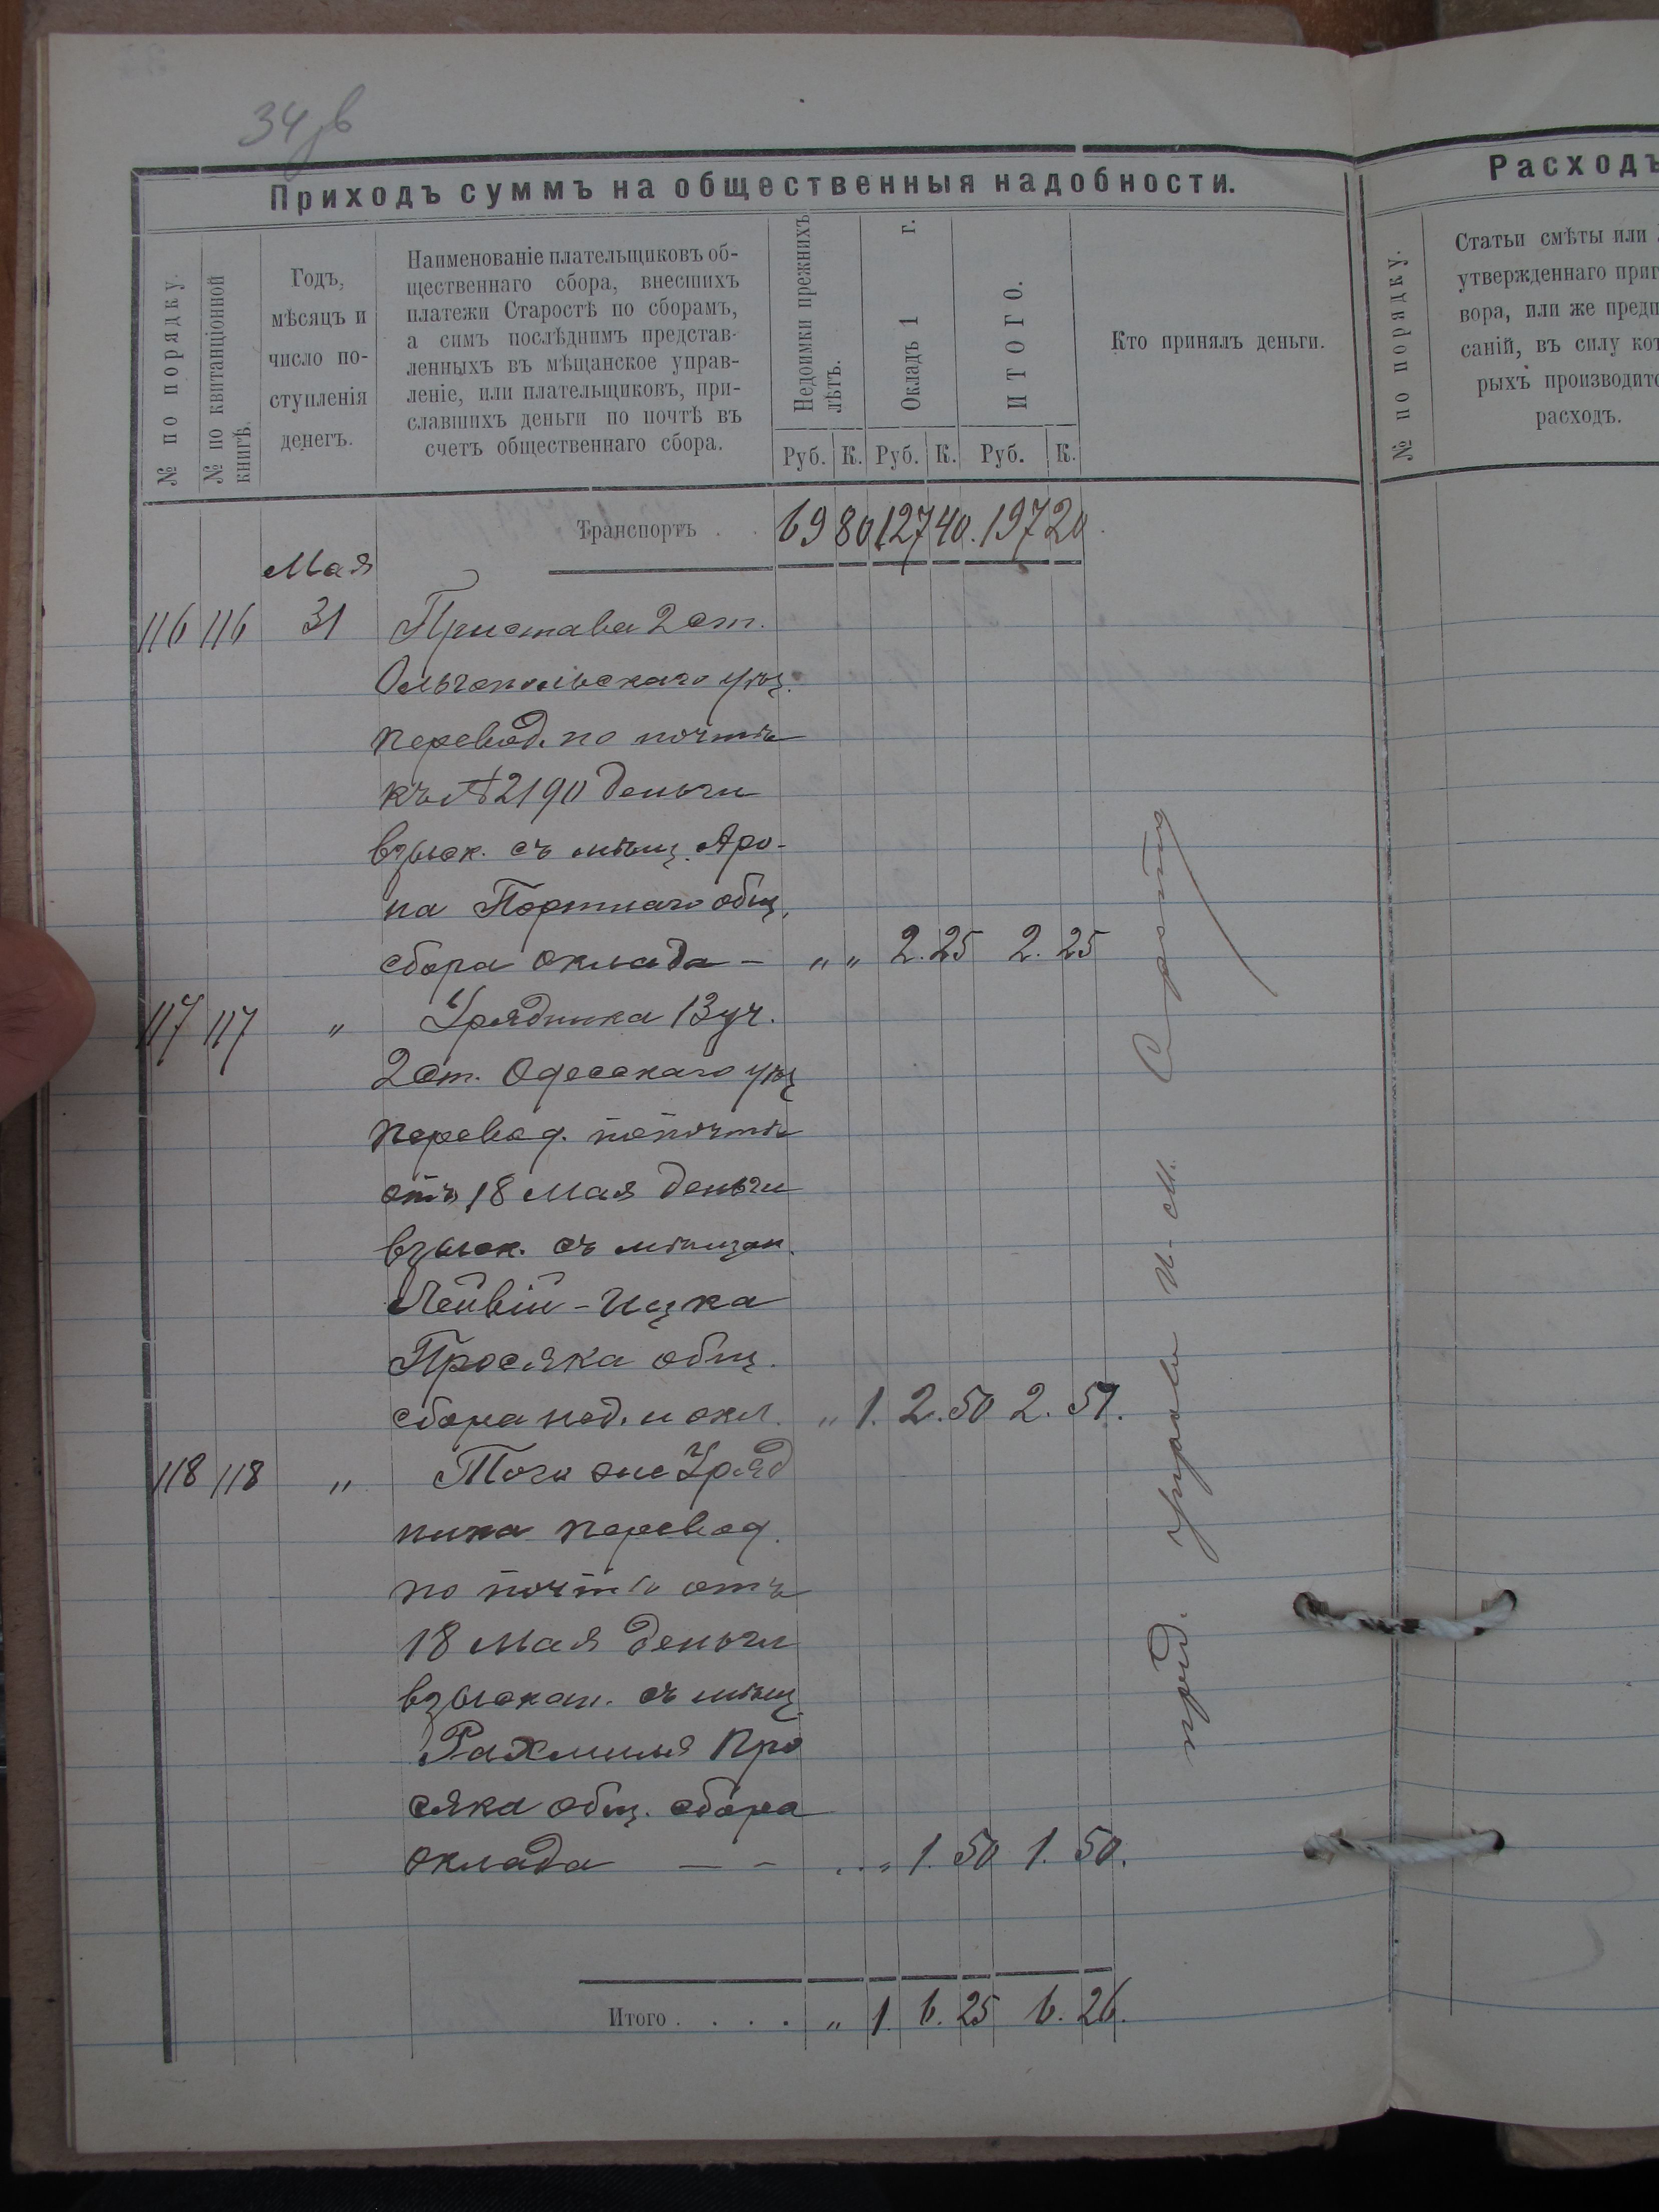 34 об
Приходъ суммъ на общественныя надобности.
№ по порядку.
№ по квитанціонной
книгѣ.
Годъ,
мѣсяцъ и
число по-
ступленія
денегъ.
Наименованіе плательщиковъ об-
щественнаго сбора, внесшихъ
платежи Старостѣ по сборамъ,
а симъ послѣднимъ представ-
ленныхъ въ мѣщанское управ-
леніе, или плательщиковъ, при-
славшихъ деньги по почтѣ въ
счетъ общественнаго сбора.
Недоимки прежнихъ
лѣтъ.
Окладъ 1 г.
ИТОГО.
Руб. К. Руб. К. Руб. К.
Кто принялъ деньги.
Транспортъ . . 69 80 127 40. 197 20.
Мая
116 116 31 Пристава 2 ст.
Ольгопольскаго уѣз.
перевод. по почтѣ
къ № 2190 деньги
взыск. съ мѣщ. Аро-
на Портнаго общ.
сбора оклада - " " 2. 25 2. 25
117 117 " Урядника 13 уч.
2 ст. Одесскаго уѣз
перевод. по почтѣ
отъ 18 Мая деньги
взыск. съ мѣщан.
Лейвій-Ицка
Просяка общ.
сбора нед. и окл. " 1. 2. 50 2. 51.
118 118 " Того же Уряд
ника перевод.
по почтѣ отъ
18 Мая деньги
взыскан. съ мѣщ
Рахмиля Про
сяка общ. сбора
оклада - - " " 1. 50 1. 50.
Итого . . . . " 1. 6. 25 6. 26.
Расходъ
№ по порядку.
Статьи смѣты или
утвержденнаго приг
вора, или же предп
саній, въ силу кот
рыхъ производитс
расходъ.